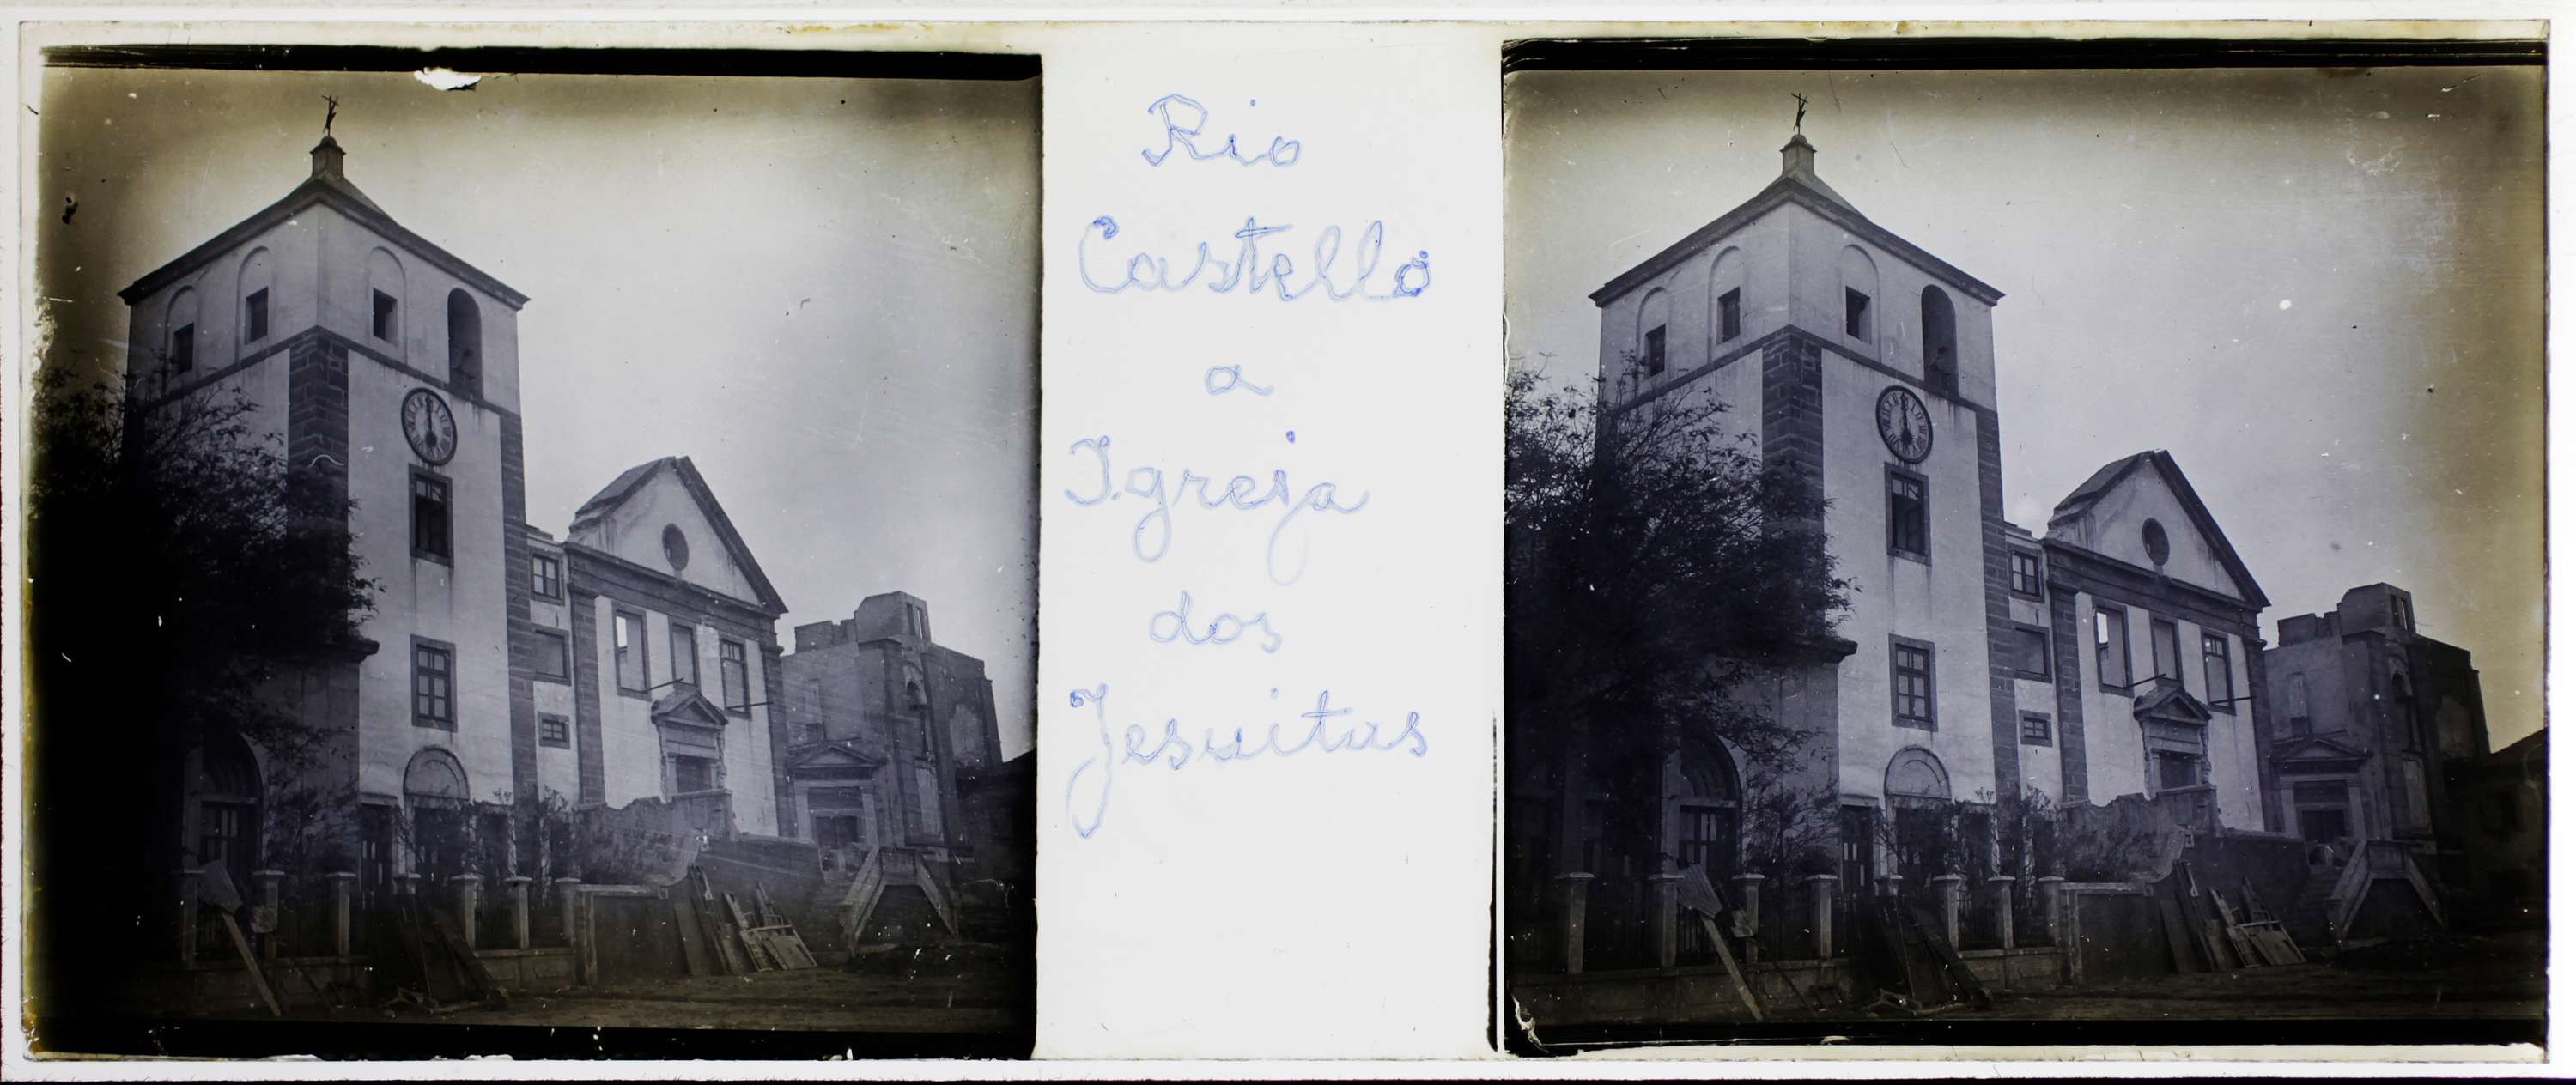 Rio
Castello
a
Igreja
dos
Jesuitas